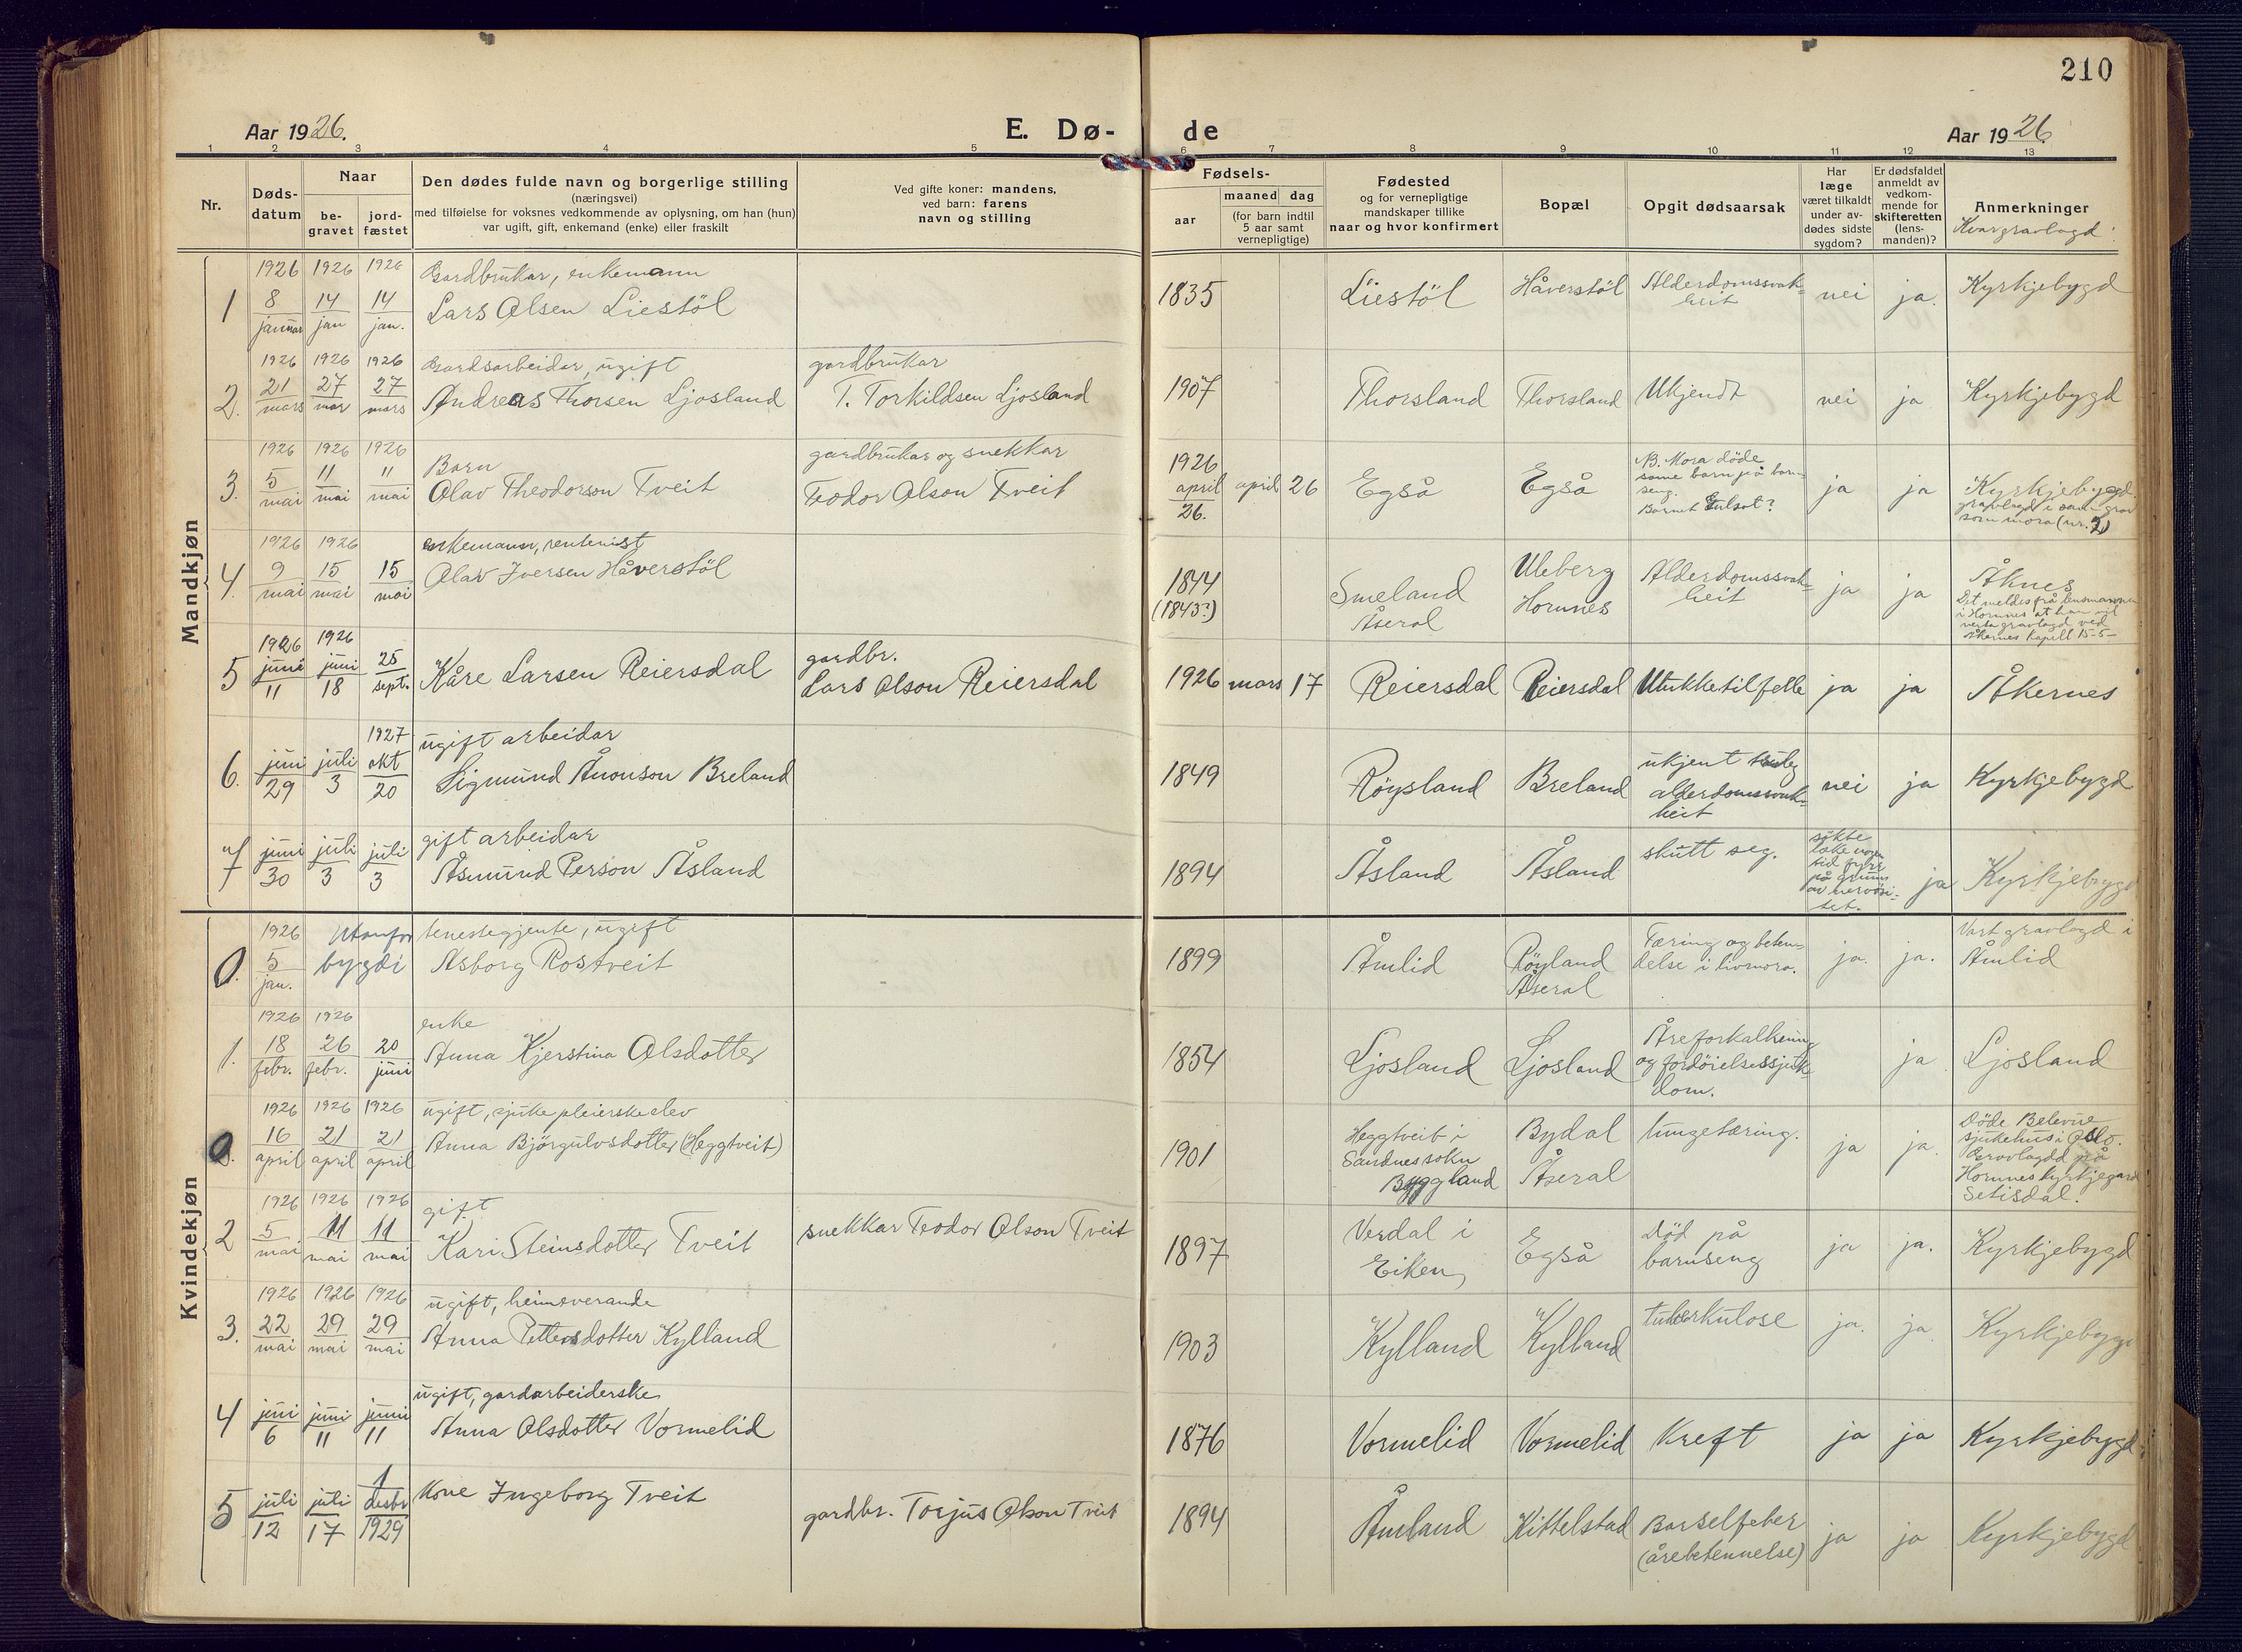 210
Aar 1926.
E. Dø-
de
Aar 1926.
1 2 3 4 5 6 7 8 9 10 11 12 13
Nr.
Døds-
datum
Naar
be-
gravet
jord-
fæstet
Den dødes fulde navn og borgerlige stilling
(næringsvei)
med tilføielse for voksnes vedkommende av oplysning, om han (hun)
var ugift, gift, enkemand (enke) eller fraskilt
Ved gifte koner: mandens,
ved barn: farens
navn og stilling
Fødsels-
aar
maaned dag
(for barn indtil
5 aar samt
vernepligtige)
Fødested
og for vernepligtige
mandskaper tillike
naar og hvor konfirmert
Bopæl
Opgit dødsaarsak
Har
læge
været tilkaldt
under av-
dødes sidste
sygdom?
Er dødsfaldet
anmeldt av
vedkom-
mende for
skifteretten
(lens-
manden)?
Anmerkninger
Kvar gravlagd
Mandkjøn
1
1926 8 januar
1926 14 jan
1926 14 jan.
Gardbrukar, enkemann
Lars Olsen Liestöl
1835
Liestöl
Håverstöl
Alderdomssvak-
heit
nei
ja.
Kyrkjebygd
2.
1926 21 mars
1926 27 mar
1926 27 mars
Gardsarbeidar, ugift
Andreas Thorsen Ljosland
gardbrukar
T. Torkildsen Ljosland
1907
Thorsland
Thorsland
Ukjendt
nei
ja
Kyrkjebygd
3.
1926 5 mai
1926 11 mai
1926 11 mai
Barn
Olav Theodorson Tveit
gardbrukar og snekkar
Teodor Olson Tveit
1926
april
26.
april 26
Egså
Egså
NB. Mora döde
same barn på barn-
seng.
Barnet
ja
ja
Kyrkjebygd.
gravlagd i same grav
som mora (nr. 2)
4.
1926 9 mai
1926 15 mai
15 mai
enkemann, rentenist
Olav Iversen Håverstöl
1844
(1843?)
Smeland
Åseral
Uleberg
Hornnes
Alderdomssvak-
heit
ja
ja
Åknes
Det meldes frå lensmannen
i Hornnes at han vil
verta gravlagd ved
Åkernes kapell 15-5-
5
1926 juni 11
1926 juni 18
25 sept.
Kåre Larsen Reiersdal
gardbr.
Lars Olson Reiersdal
1926 mars 17
Reiersdal
Reiersdal
Ulukketilfelle
ja
ja
Åkernes
6.
juni 29
juli 3
1927 okt 20
ugift arbeidar
Sigmund Ånonson Breland
1849
Röysland
Breland
ukjent truleg
alderdomssvak-
heit
nei
ja
Kyrkjebygd
7
juni 30
juli 3
juli 3
gift arbeidar
Åsmund Person Åsland
1894
Åsland
Åsland
skutt seg.
sökte
læke nogen
tid fyrr
på grunn
av nervösi-
tet.
ja
Kyrkjebygd
Kvindekjøn
0.
1926 5 jan.
Utanfor
bygdi
tenestegjente, ugift
Asborg Rostveit
1899
Åmlid
Röyland
Åseral
Tæring og beten-
delse i
ja.
ja.
Vart gravlagd i
Åmlid
1.
1926 18 febr.
1926 26 febr.
20 juni
enke
Anna Kjerstina Olsdotter
1854
Ljosland
Ljosland
Åreforkalkning
og fordöielsessjuk-
dom.
ja
Ljosland
0.
1926 16 april
1926 21 april
1926 21 april
ugift, sjukepleierskeelev
Anna Björgulvsdotter (Heggtveit)
1901
Heggtveit i
Sandnes sokn
Byggland
Bydal
Åseral
lungetæring.
ja
ja.
Döde Belevue
sjukehus i Oslo.
Gravlagdd på
Hornnes kyrkjegard
Setisdal.
2
1926 5 mai
1926 11 mai
1926 11 mai
gift
Kari Steinsdotter Tveit
snekkar Teodor Olson Tveit
1897
Verdal i
Eiken
Egså
Död på
barnseng
ja
ja.
Kyrkjebygd
3.
1926 22 mai
1926 29 mai
1926 29 mai
ugift, heimeverande
Anna Pettersdotter Kylland
1903
Kylland
Kylland
tuberkulose
ja.
ja
Kyrkjebygd
4
juni 6
juni 11
juni 11
ugift, gardarbeiderske
Anna Olsdotter Vormelid
1876
Vormelid
Vormelid
Kreft
ja
ja
Kyrkjebygd
5
juli 12
juli 17
1 desbr 1929
Kone Ingeborg Tveit
gardbr. Torjus Olson Tveit
1894
Åmland
Kittelstad
Barselfeber
(årebetennelse)
ja
ja
Kyrkjebygd